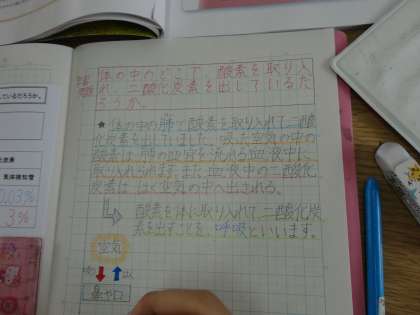 しているだろうか。
気体検知管
0.03%
3%
体の中のどこで、酸素を取り入
れ、二酸化炭素を出しているだ
ろうか。
★体の中の肺で酸素を取り入れて二酸
化炭素を出していました。吸う空気の中の
酸素は、肺の血管を流れる血液中に
取り入れられます。また、血液中の二酸化
炭素は、はく空気の中へ出される。
酸素を体に取り入れて二酸化炭
素を出すことを、呼吸といいます。
空気
鼻や口